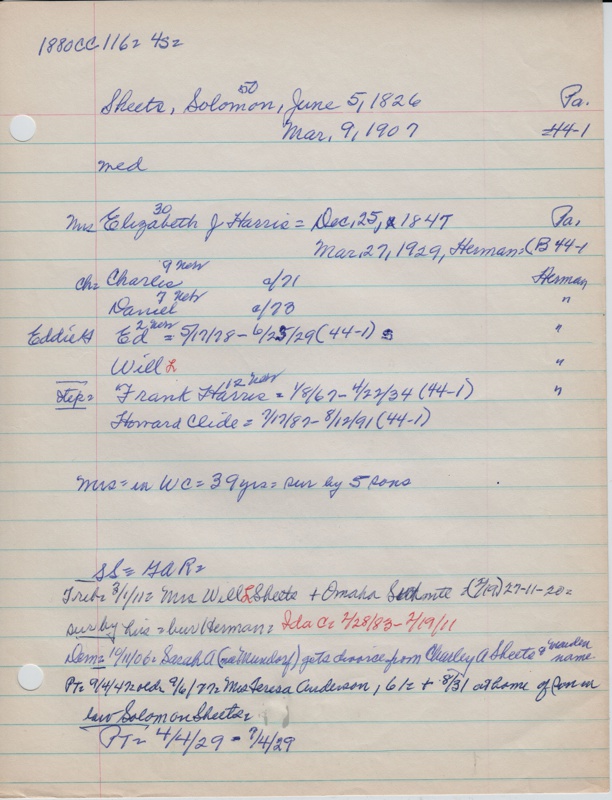 1880CC116= 4S=
50
Sheets, Solomon, June 5, 1826 Pa.
Mar, 9, 1907 44-1
med
30
Mrs Elizabeth J Harris = Dec, 25, 1847 Pa,
Mar, 27, 1929, Herman=(B 44-1
9 Neb
Ch= Charles a/71 Herman
7 Neb
Daniel a/73 "
2 Neb
Eddie H Ed = 5/17/78 - 6/25/29 (44-1) "
Will L "
12 Neb
Step= "Frank Harris = 1/8/67 - 4/22/34 (44-1) "
Howard Clide = 7/17/87 - 8/12/91 (44-1)
Mrs = in WC = 39 yrs = sur by 5 sons
SS = GAR=
Trib= 3/1/11= Mrs Will L Sheets + Omaha (2/19) 27-11-20=
sur by hus = bur Herman= Ida C= 2/28/83 - 2/19/11
Dem= 10/11/06= Sarah A (nee Mundorf) gets divorce from Charley A Sheets & maiden name
PT= 9/4/47 9/6/77= Mrs Teresa Anderson, 61= + 8/31 at home of son in
law Solomon Sheets=
PT= 4/4/29 - 7/4/29